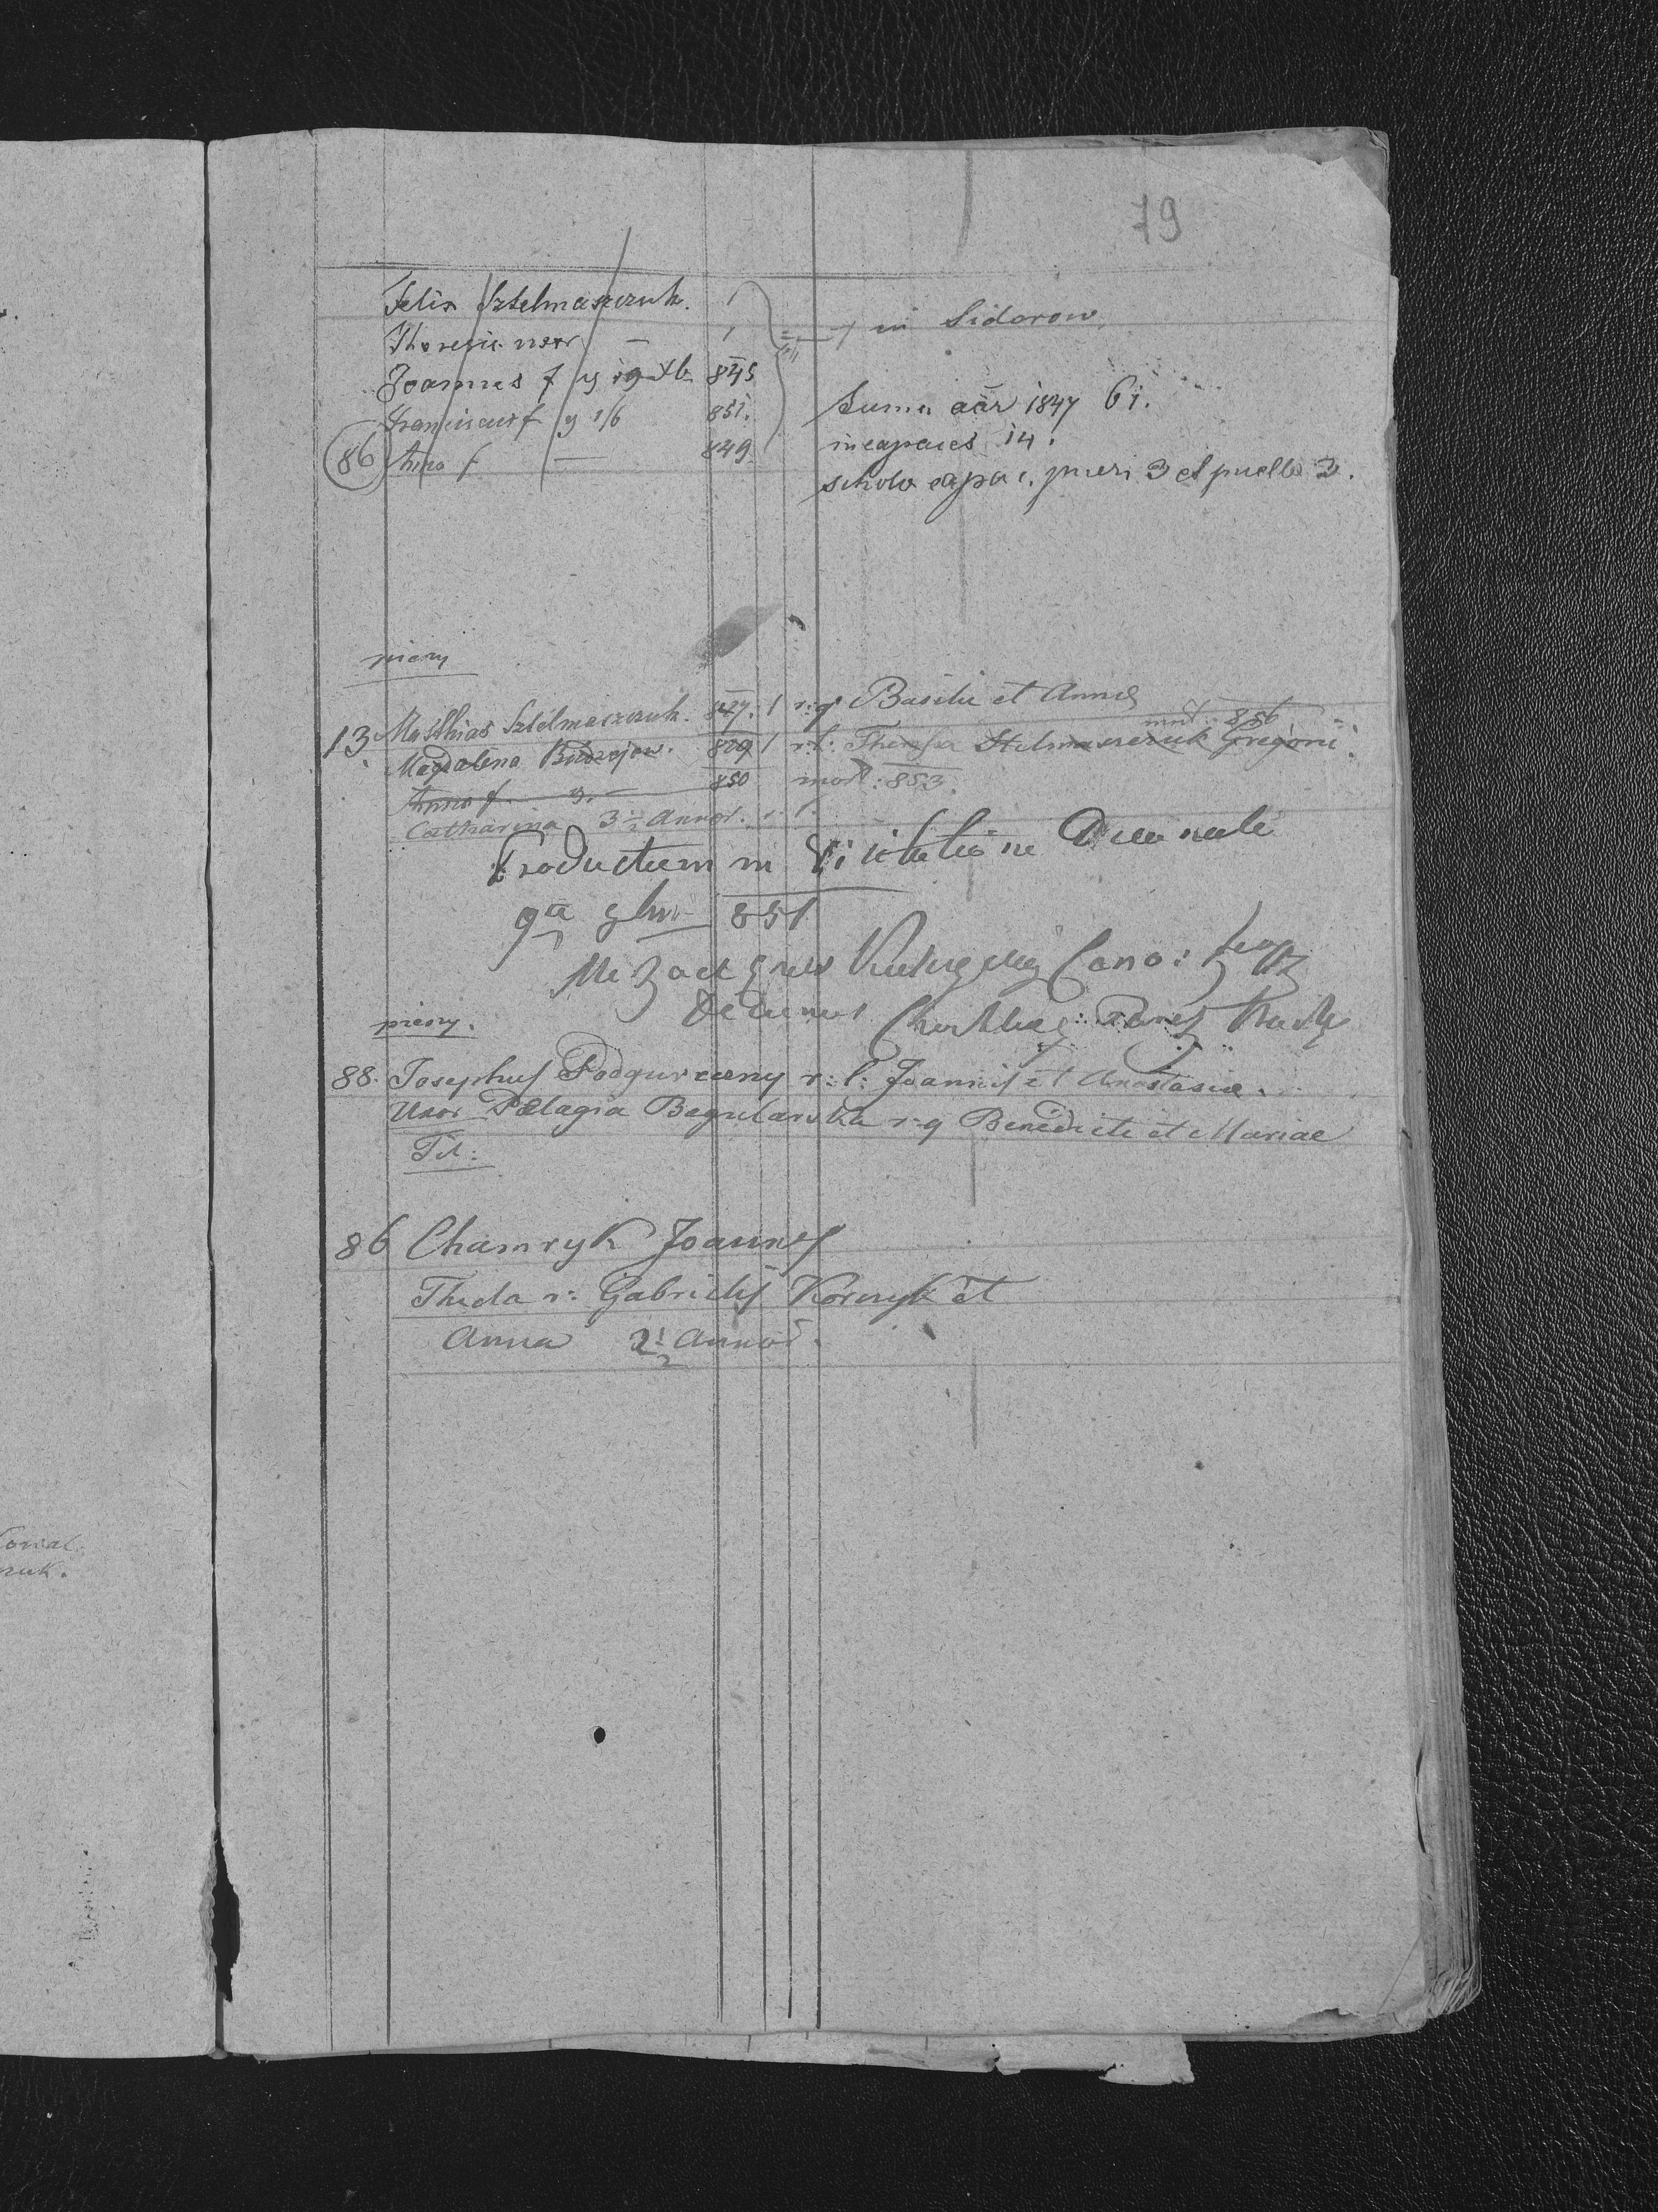 79
Felix Sztelmaszczuk. 1
Theresia uxor — 1
in Sidorow.
Joannes f 845
Franciscus f 9 1/6 851.
86 Anna f — 849
Suma aär 1847 61.
incapaces 14.
schola capac. pueri 3 et puella 3.
piesy
13. Matthias Sztelmaszczuk. 827. 1 r: g Basilii et Anna
Magdalena 829 1 r: l: Theresia Stelmaszczuk Gregorii
mort: 856
Anna f 850 mort: 853.
Catharina 3 1/2 Annor.
Productum in Visitatione Decanali
851
Cano:
Decanus
piesy.
88. Josephus Podgurczny r: l: Joannis et Anastasiae.
Uxor Pelagia Begularska r: g Benedicti et Mariae
Fil:
86 Chamryk Joannes
Thecla r: Gabrielis Kornyk et
Anna 2 1/2 Annor.